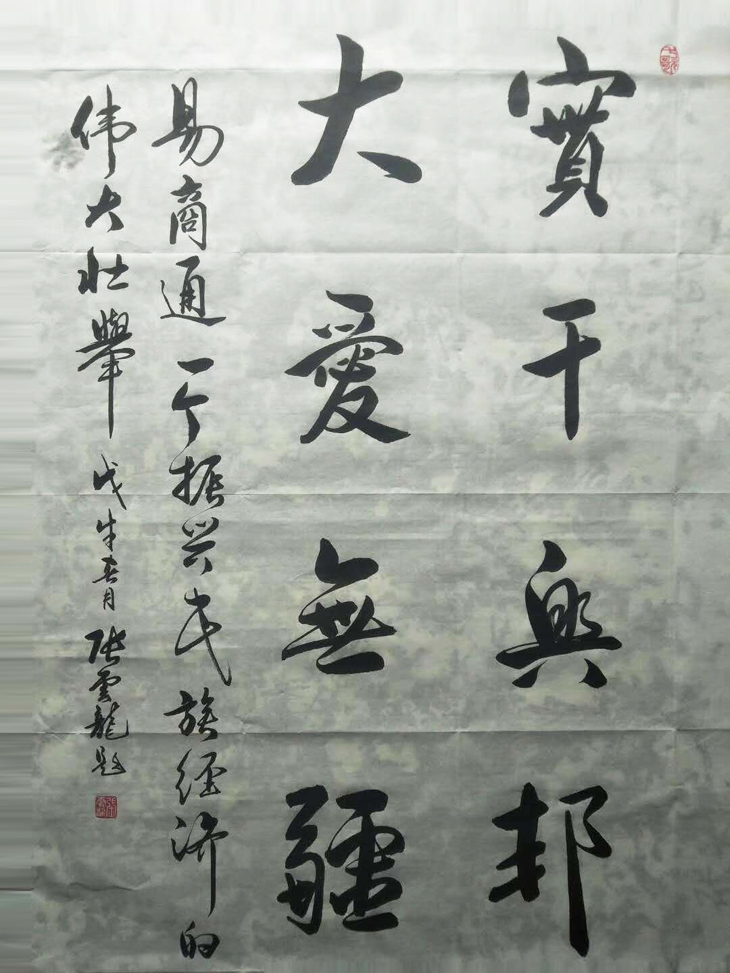 實干興邦
大愛無疆
易商通一个振兴民族經济的
伟大壮舉 戊戌春月 张雲龍题